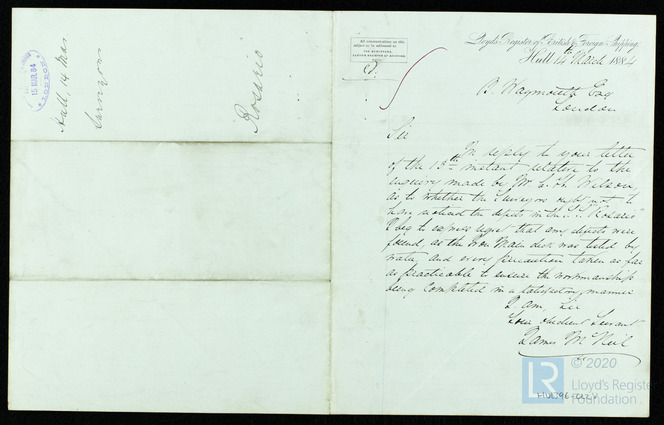 15 MAR 84
LONDON
Hull, 14 Mar
Surveyors
Rosario
All communications on this
subject to be addressed to
THE SECRETARY,
Lloyd's Register of British & Foreign Shipping,
Hull 14th March 1884
B. Waymouth Esq
London
Sir
In reply to your letter
of the 13th instant relative to the
enquiry made by Mr C. H. Wilson,
as to whether the Surveyors ought not to
have noticed the defects in the S.S. "Rosario"
I beg to express regret that any defects were
found, as the Iron Main deck was tested by
water, and every precaution taken as far
as practicable to ensure the workmanship
being completed in a satisfactory manner
I am, Sir
Your obedient Servant
James McNeil
© 2020
LR
Lloyd's Register
Foundation